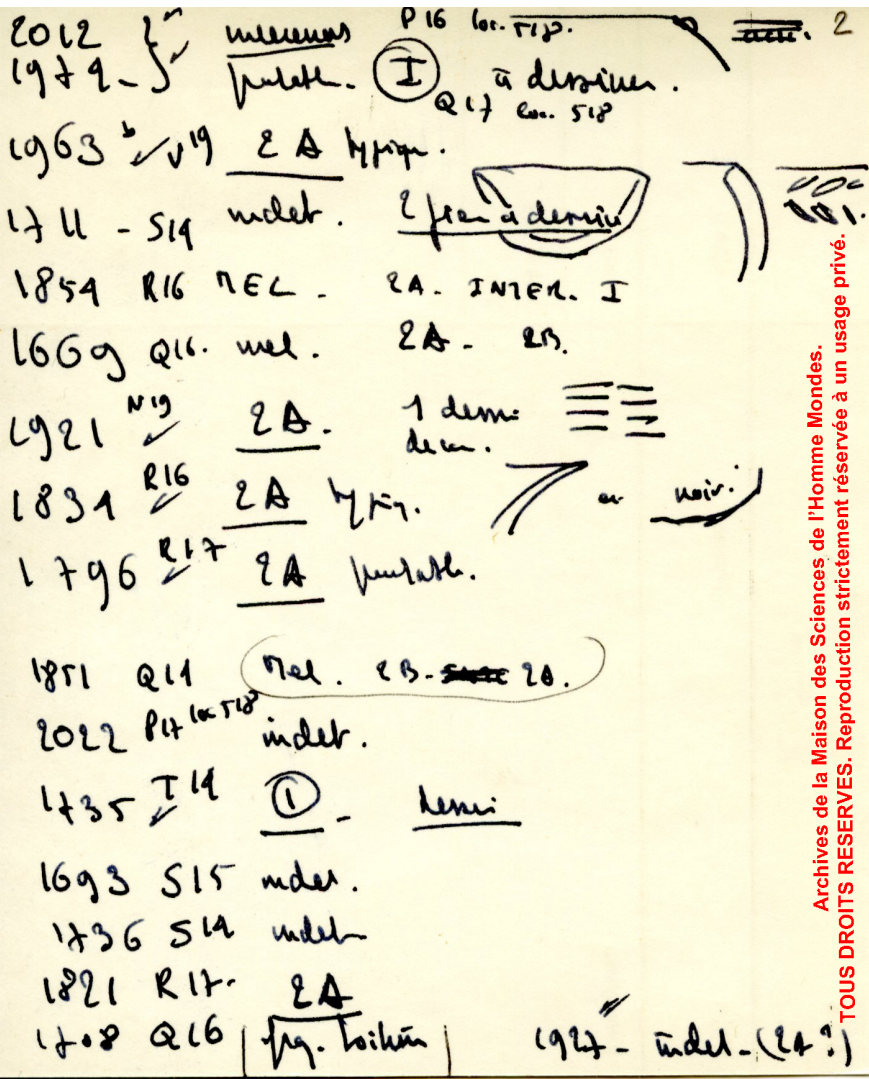 2012 P16 loc. 518. 2
1972 - I à dessiner.
Q17 loc. 518
1963 V19 2A typiqu.
1711 - S14 indet. 2 à dessin
1854 R16 MEL - 2A. INTER. I
1669 Q16. mel. 2A - 2B.
1921 N19 2A. 1 dessin
1834 R16 2A typiq. ou noir.
1796 R17 2A
1851 Q14 Mel. 2B - 2A.
2022 P17 loc 518 indet.
1735 T14 1 - dessin
1693 S15 indet.
1736 S14 indet
1821 R17. 2A
1708 Q16 frg. 1927 - indet - (2A ?)
Archives de la Maison des Sciences de l'Homme Mondes.
TOUS DROITS RESERVES. Reproduction strictement réservée à un usage privé.